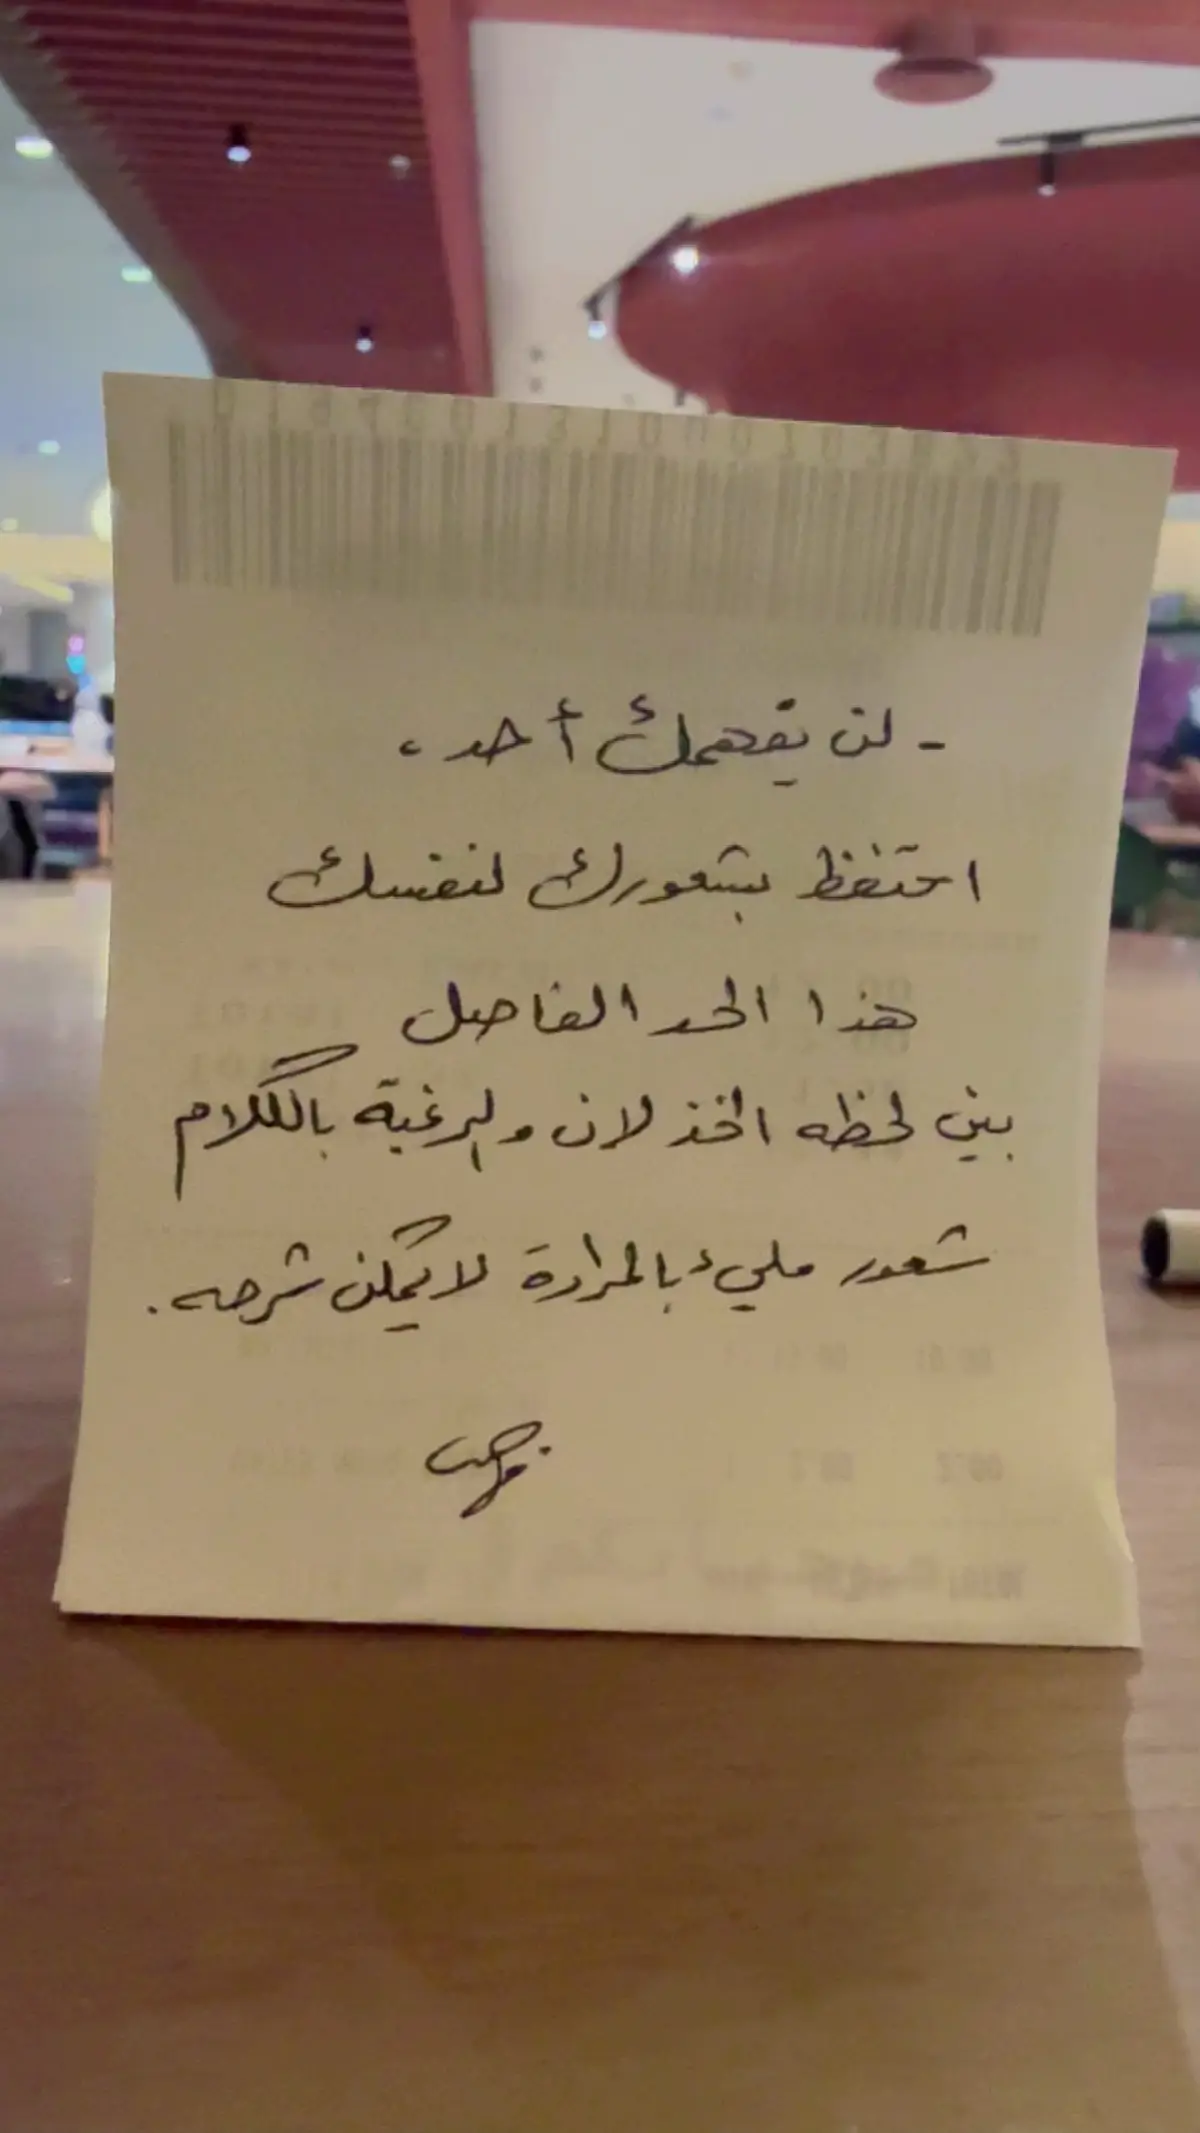 - لن يفهمك أحد ،
احتفظ بشعورك لنفسك
هذا الحد الفاصل
بين لحظه الخذلان والرغبة بالكلام
شعور مليء بالمرارة لا يمكن شرحه .